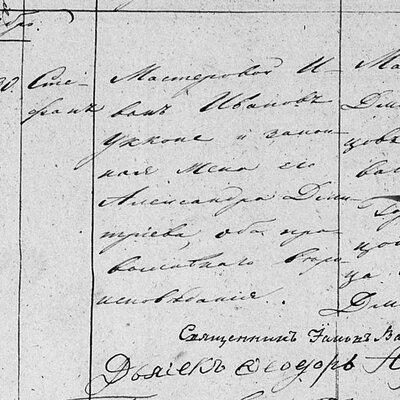 бр.
30. Сте-
фанъ
Мастеровой И-
ванъ Ивановъ
и закон-
ная жена его
Александра Дми-
тріева, оба пра-
вославнаго вѣро-
исповѣданія.
Ма
Дми
цовъ
ва
ца
Дми
Священникъ
Дьячекъ Ѳеодоръ